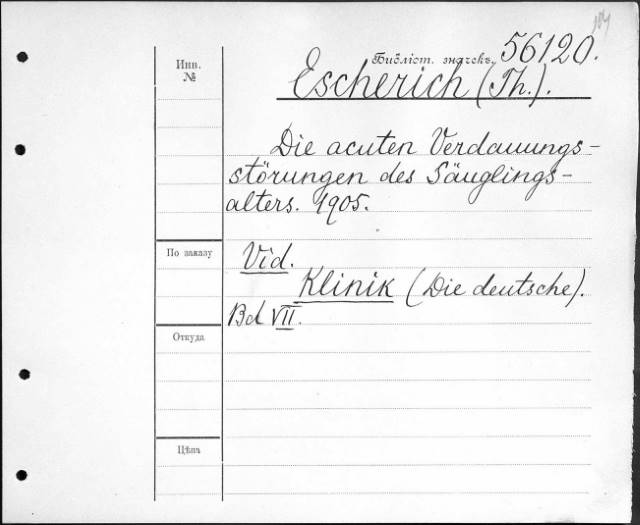 Инв. №
Библіот. значекъ 56120.
Escherich (Th.).
Die acuten Verdauungs-
störungen des Säuglings-
alters. 1905.
По заказу
Vid.
Klinik (Die deutsche).
Bd VII.
Откуда
Цѣна